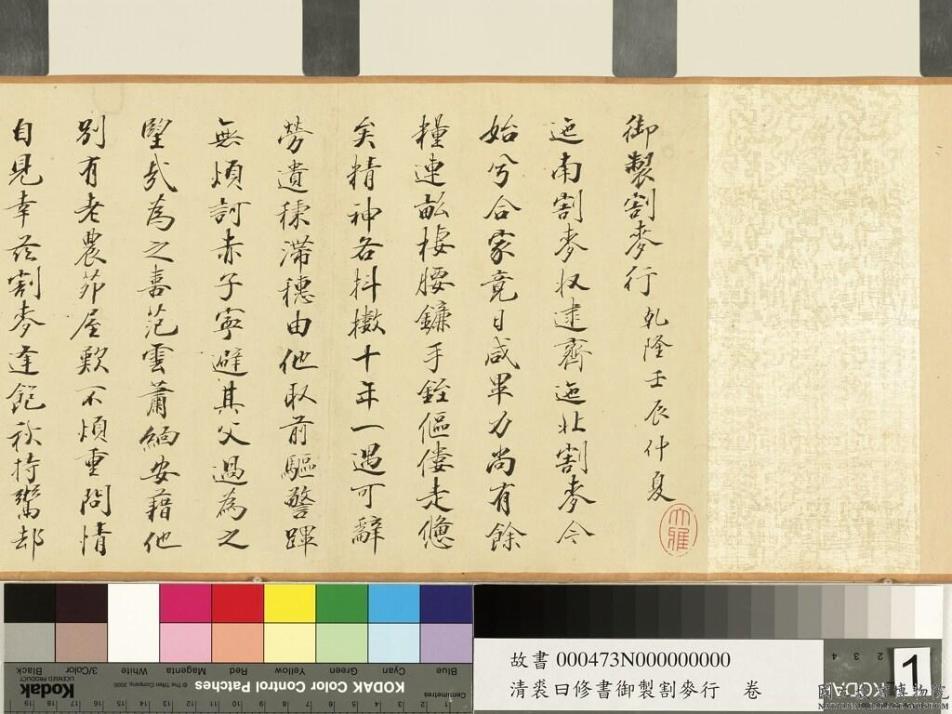 御製割麥行 乾隆壬辰仲夏
大雅
迤南割麥收逮齊迤北割麥今
始兮合家竟日咸畢力尚有餘
糧連畝棲腰鐮手銍傴僂走憊
矣精神各抖擻十年一遇可辭
勞遺秉滯穗由他取前驅警蹕
無煩訶赤子寧避其父過為之
慰哉為之喜范雲蕭緬安藉他
別有老農茆屋歎不煩重問情
自見幸茲割麥逢飽秋持鬻却
故書 000473N000000000
清裘曰修書御製割麥行 卷
1
KODAK Color Control Patches
© The Tiffen Company, 2000
Kodak
LICENSED PRODUCT
Blue
Cyan
Green
Yellow
Red
Magenta
White
3/Color
Black
Centimetres
KODAK